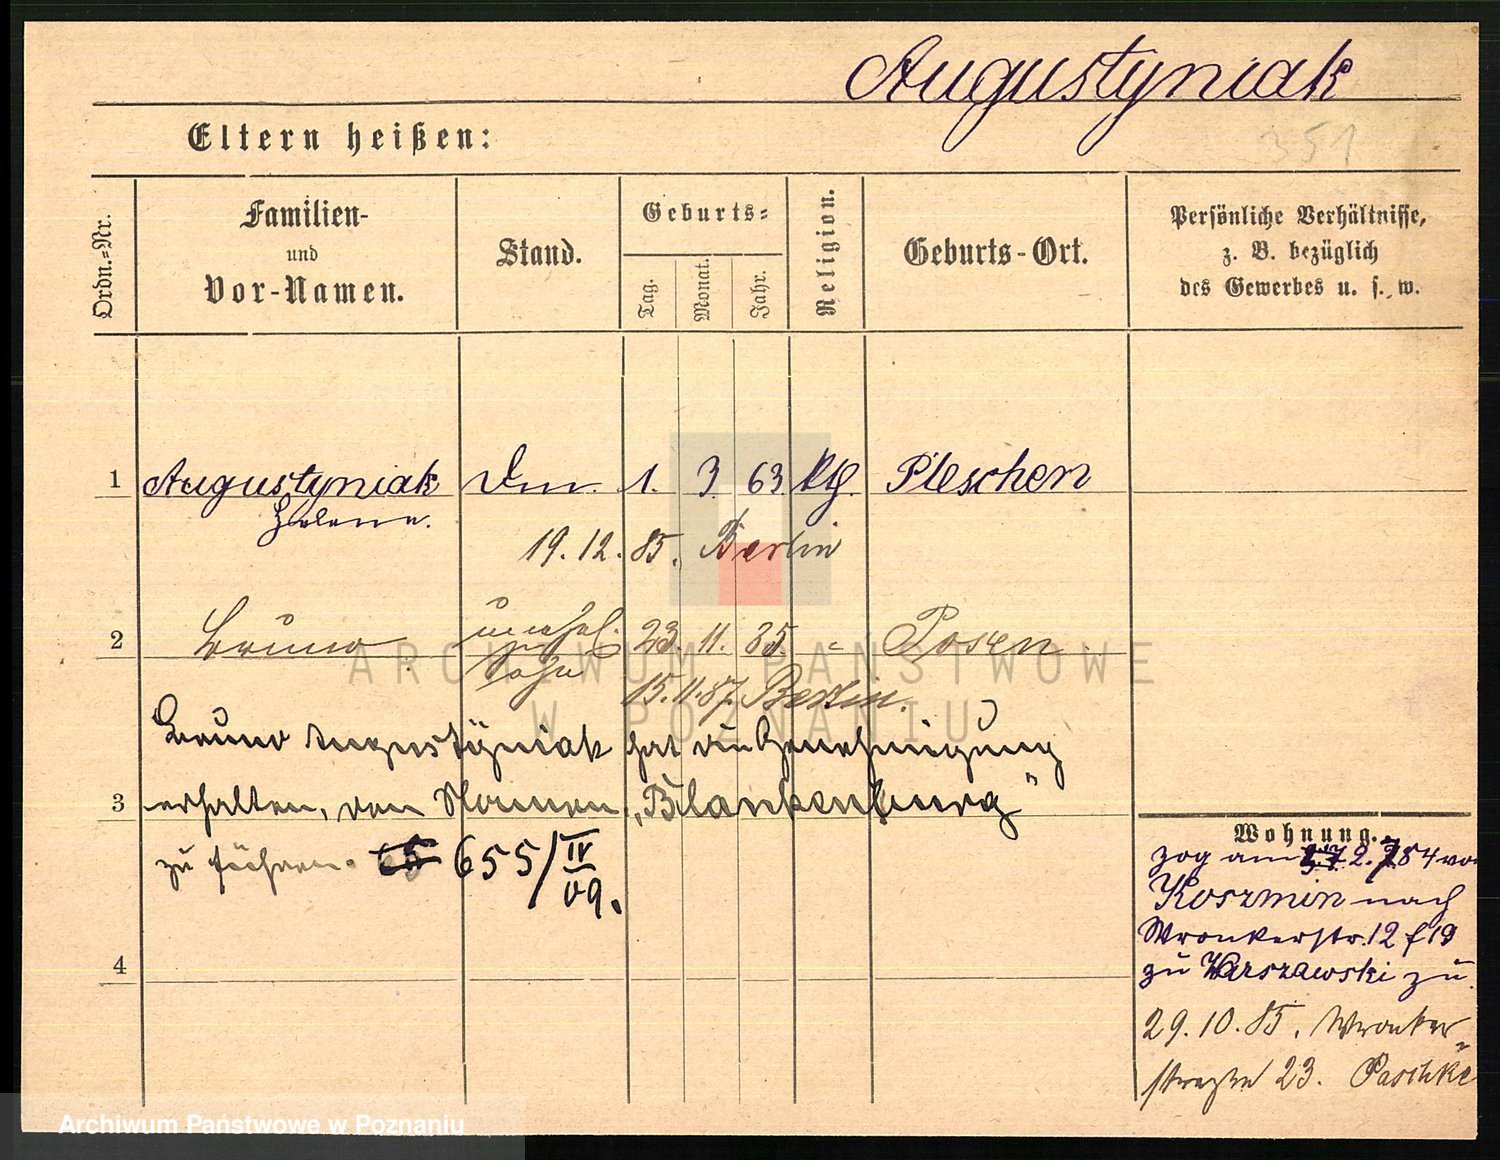 Augustyniak
351
Eltern heißen:
Ordn.=Nr.
Familien-
und
Vor-Namen.
Stand.
Geburts=
Tag.
Monat.
Jahr.
Religion.
Geburts-Ort.
Persönliche Verhältnisse,
z. B. bezüglich
des Gewerbes u. s. w.
1 Augustyniak 1. 3. 63. kth. Pleschen
Helene.
19. 12. 85. Berlin
2 Bruno unehel. 23. 11. 85. = Posen
Sohn
15. 11. 87. Berlin.
Bruno Augustyniak hat die Genehmigung
3 erhalten, den Namen „Blankenburg"
zu führen. 655/IV
09.
4
Wohnung.
zog am 2. 7 84 von
Koszmin nach
Wronkerstr. 12 f 19
zu Warszawski zu.
29. 10. 85. Wronker=
straße 23. Paschke
ARCHIWUM PAŃSTWOWE
W POZNANIU
Archiwum Państwowe w Poznaniu